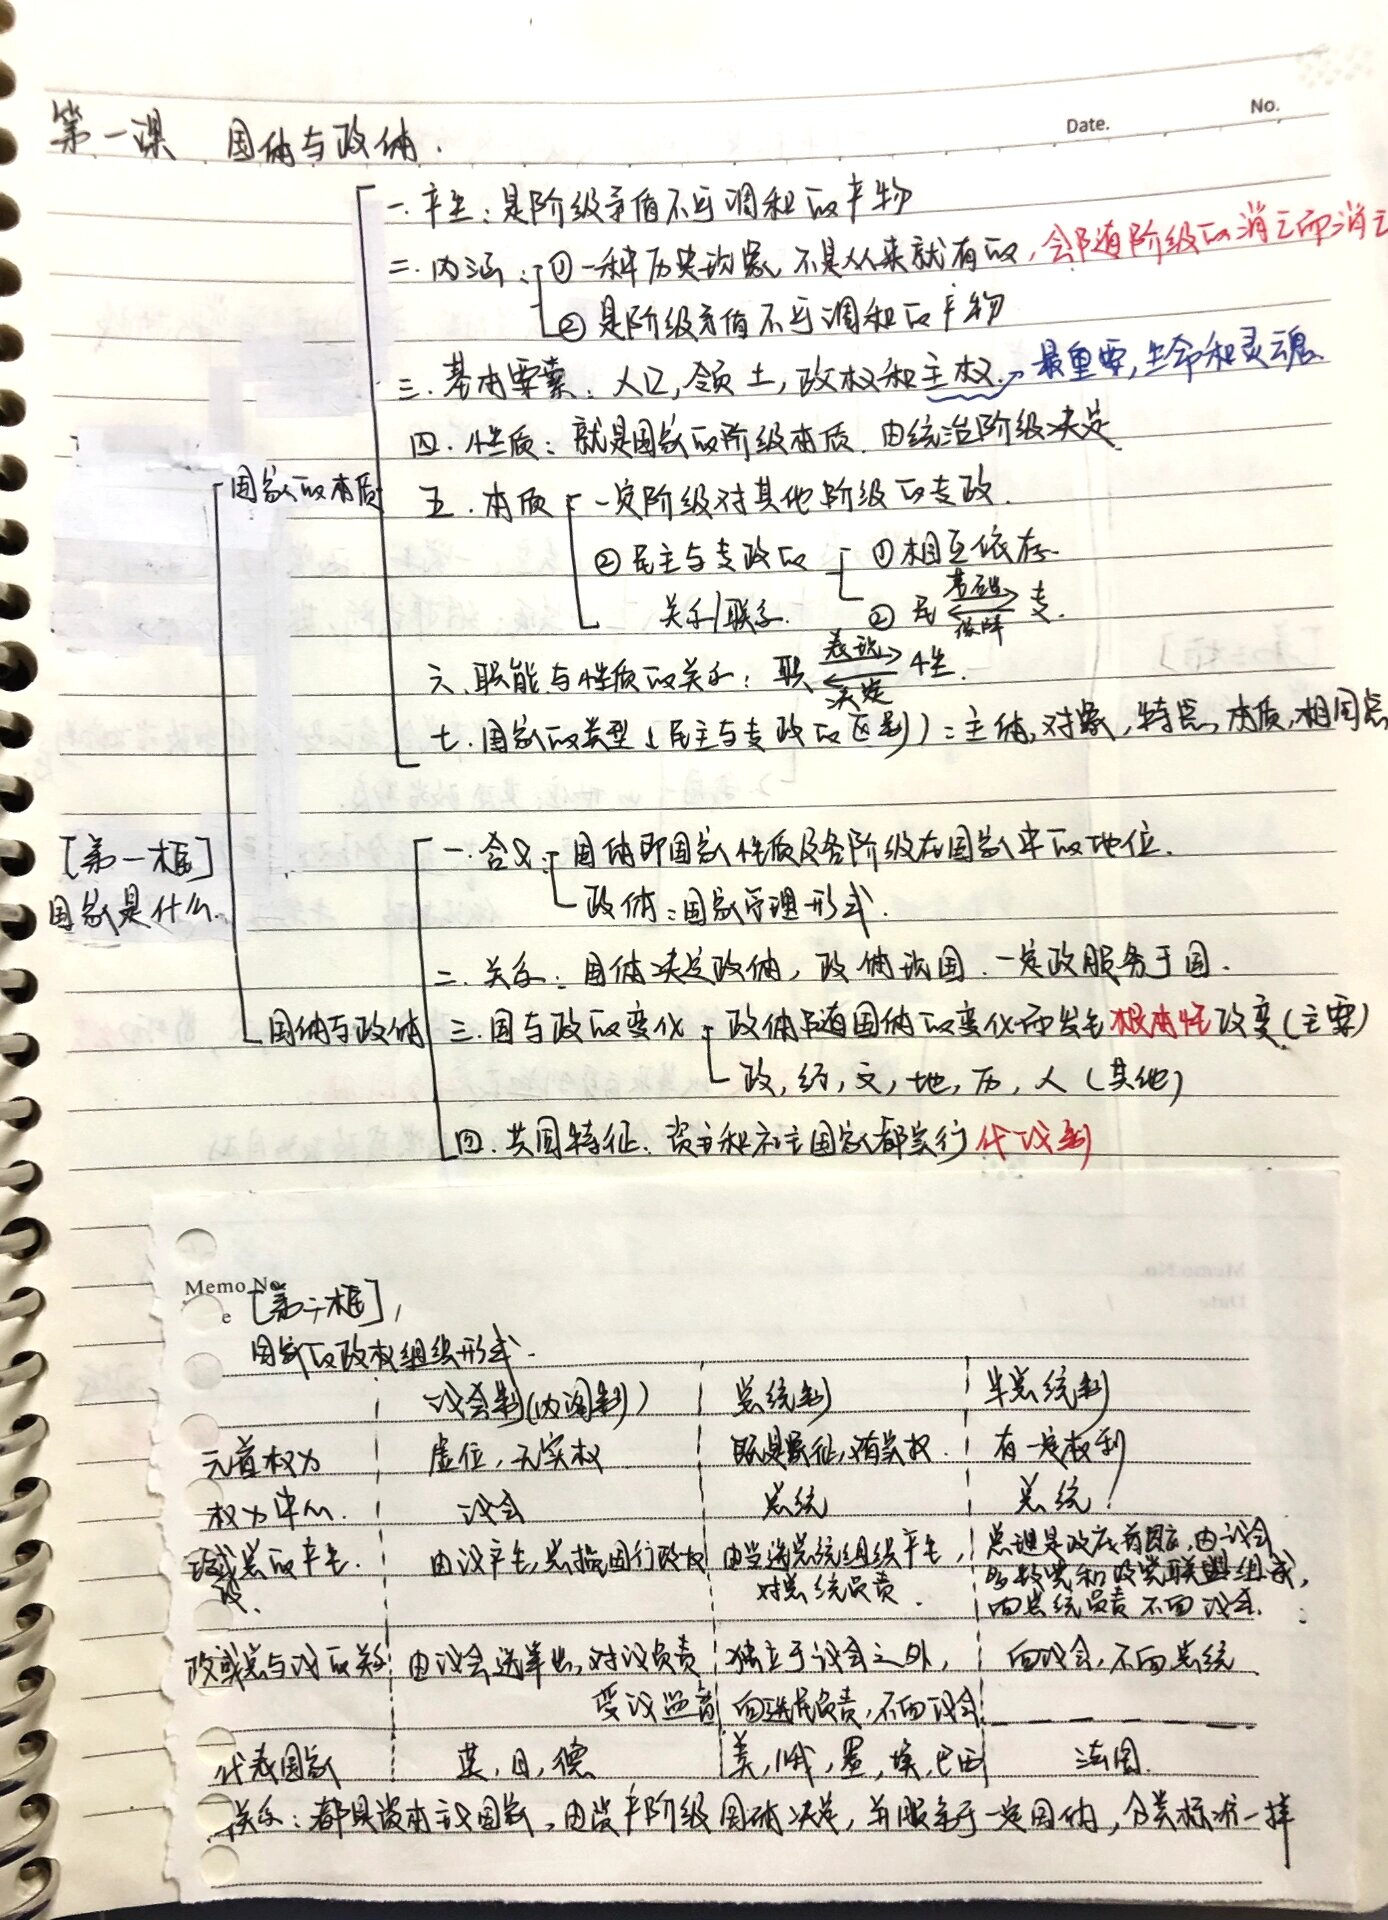 No.
Date.
第一课 国体与政体.
一.产生：是阶级矛盾不可调和的产物
二.内涵：①一种历史现象,不是从来就有的,会随阶级的消亡而消亡
②是阶级矛盾不可调和的产物
三.基本要素：人口,领土,政权和主权.→最重要,生命和灵魂.
四.性质：就是国家的阶级本质.由统治阶级决定
国家的本质
五.本质 一定阶级对其他阶级的专政.
②民主与专政的 ①相互依存.
关系/联系. ②民 基础 保障 专.
六.职能与性质的关系：职 表现 决定 性.
七.国家的类型(民主与专政的区别)：主体,对象,特点,本质,相同点
[第一框]
国家是什么.
一.含义：国体即国家性质及各阶级在国家中的地位.
政体：国家管理形式.
二.关系：国体决定政体,政体现国.一定政服务于国.
国体与政体
三.国与政的变化 政体随国体的变化而发生根本性改变(主要)
政,经,文,地,历,人(其他)
四.共同特征.资主和社主国家都实行代议制
Memo No.
[第二框],
国家的政权组织形式.
议会制(内阁制) 总统制 半总统制
元首权力 虚位,无实权 既是象征,有实权. 有一定权利
权力中心. 议会 总统 总统!
政或总的产生. 由议产生,总揽国行政权 由当选总统组织产生,对总统负责. 总理是政府首脑,由议会多数党和政党联盟组成,向总统负责不向议会.
政或总与议的关系 由议会选举出,对议负责受议监督 独立于议会之外,向选民负责,不向议会 向议会,不向总统
代表国家 英,日,德 美,俄,墨,埃,巴西 法国.
关系：都是资本主义国家,由资产阶级国体决定,并服务于一定国体,分类标准一样